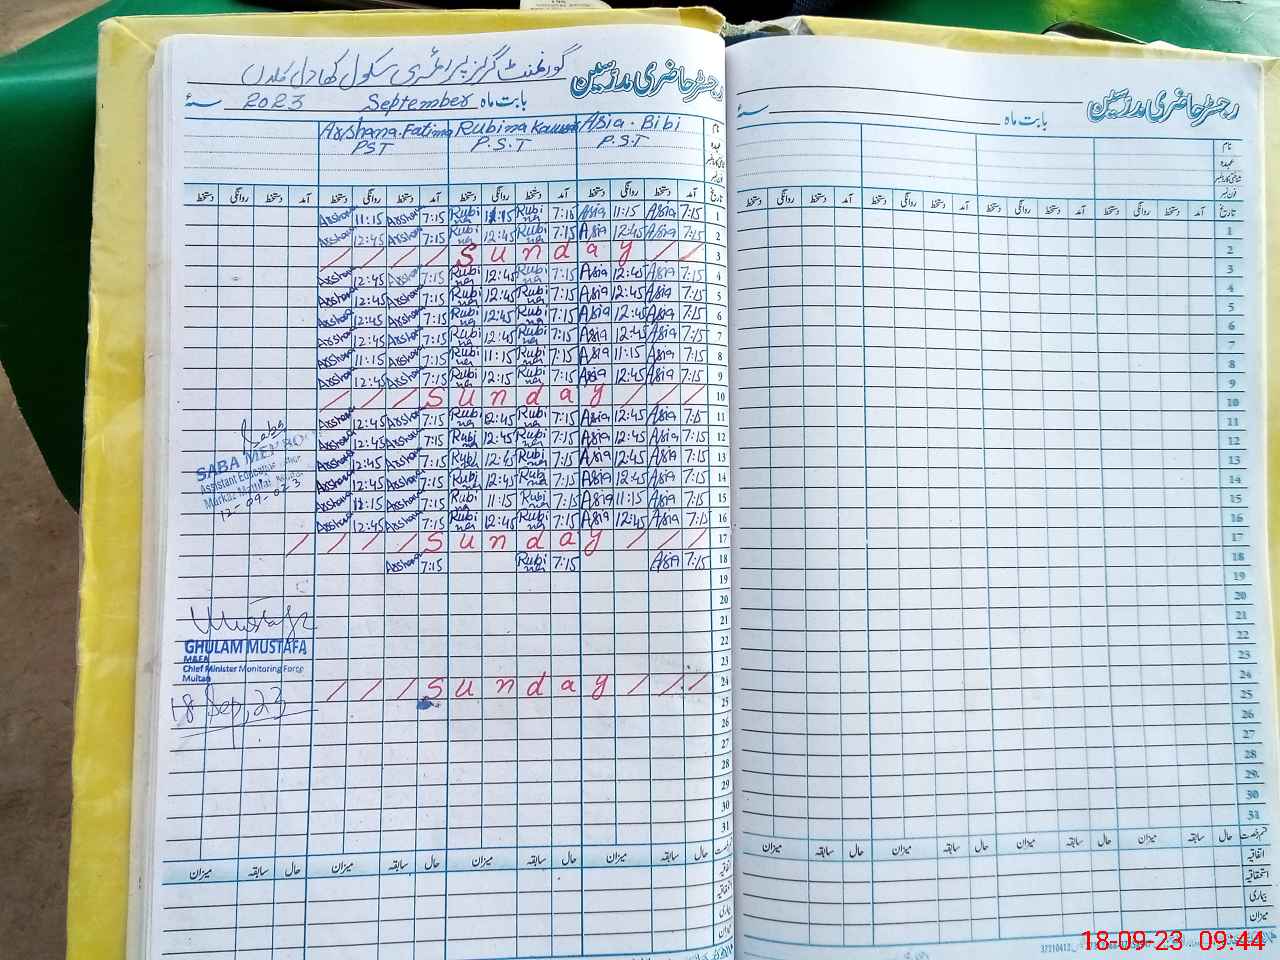 رجسٹر حاضری مدرسین گورنمنٹ گرلز پرائمری سکول
بابت ماہ September 2023
نام Asia . Bibi Rubina Kausar Arshana Fatima
عہدہ P.S.T P.S.T PST
تاریخ آمد دستخط روانگی دستخط آمد دستخط روانگی دستخط آمد دستخط روانگی دستخط آمد دستخط روانگی دستخط
1 7:15 Asia 11:15 Asia 7:15 Rubina 11:15 Rubina 7:15 Arshana 11:15 Arshana
2 7:15 Asia 12:45 Asia 7:15 Rubina 12:45 Rubina 7:15 Arshana 12:45 Arshana
3 Sunday
4 7:15 Asia 12:45 Asia 7:15 Rubina 12:45 Rubina 7:15 Arshana 12:45 Arshana
5 7:15 Asia 12:45 Asia 7:15 Rubina 12:45 Rubina 7:15 Arshana 12:45 Arshana
6 7:15 Asia 12:45 Asia 7:15 Rubina 12:45 Rubina 7:15 Arshana 12:45 Arshana
7 7:15 Asia 12:45 Asia 7:15 Rubina 12:45 Rubina 7:15 Arshana 12:45 Arshana
8 7:15 Asia 11:15 Asia 7:15 Rubina 11:15 Rubina 7:15 Arshana 11:15 Arshana
9 7:15 Asia 12:45 Asia 7:15 Rubina 12:15 Rubina 7:15 Arshana 12:45 Arshana
10 Sunday
11 7:15 Asia 12:45 Asia 7:15 Rubina 12:45 Rubina 7:15 Arshana 12:45 Arshana
12 7:15 Asia 12:45 Asia 7:15 Rubina 12:45 Rubina 7:15 Arshana 12:45 Arshana
13 7:15 Asia 12:45 Asia 7:15 Rubina 12:45 Rubina 7:15 Arshana 12:45 Arshana
14 7:15 Asia 12:45 Asia 7:15 Rubina 12:45 Rubina 7:15 Arshana 12:45 Arshana
15 7:15 Asia 11:15 Asia 7:15 Rubina 11:15 Rubi 7:15 Arshana 11:15 Arshana
16 7:15 Asia 12:45 Asia 7:15 Rubina 12:45 Rubina 7:15 Arshana 12:45 Arshana
17 Sunday
18 7:15 Asia 7:15 Rubina 7:15 Arshana
19
20
21
22
23
24 Sunday
25
26
27
28
29
30
31
حال سابقہ میزان حال سابقہ میزان حال سابقہ میزان حال سابقہ میزان
اتفاقیہ
استحقاقیہ
بیماری
میزان
Saba
SABA
Assistant Education
Markaz
12-09-023
Mustafa
GHULAM MUSTAFA
M&EA
Chief Minister Monitoring Force
Multan
18 Sep, 23
رجسٹر حاضری مدرسین
بابت ماہ
نام
عہدہ
شناختی کارڈ نمبر
فون نمبر
تاریخ آمد دستخط روانگی دستخط آمد دستخط روانگی دستخط آمد دستخط روانگی دستخط آمد دستخط روانگی دستخط
1
2
3
4
5
6
7
8
9
10
11
12
13
14
15
16
17
18
19
20
21
22
23
24
25
26
27
28
29
30
31
قسم رخصت حال سابقہ میزان حال سابقہ میزان حال سابقہ میزان حال سابقہ میزان
اتفاقیہ
استحقاقیہ
بیماری
میزان
18-09-23 09:44